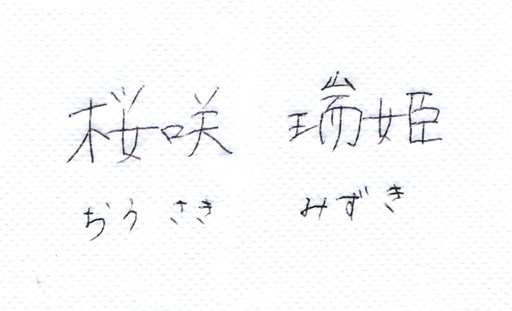 桜咲 瑞姫
おうさき みずき